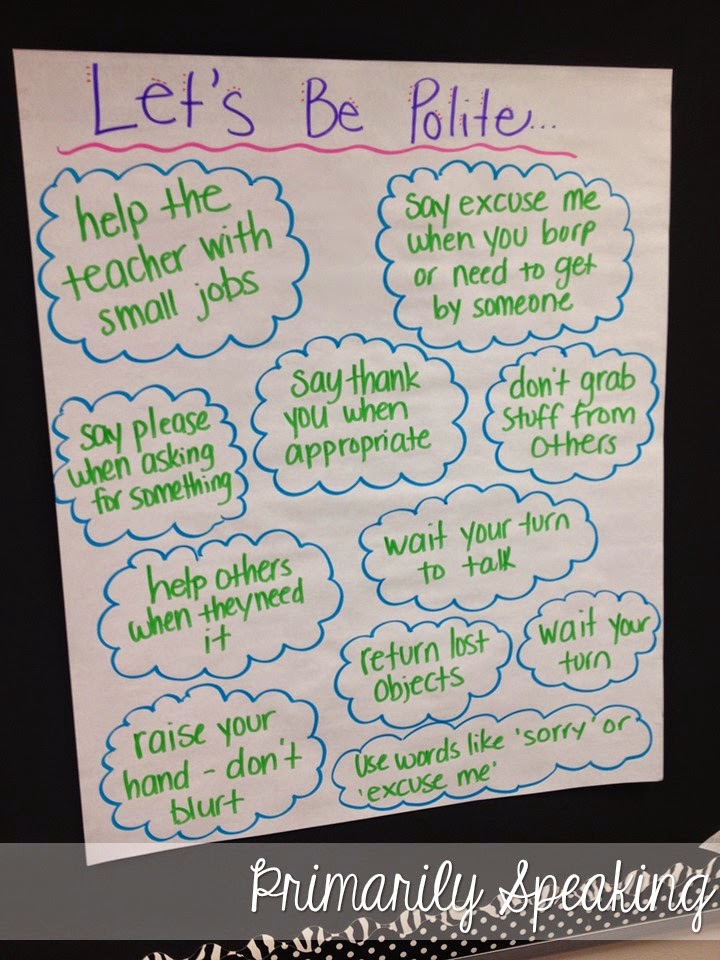 Let's Be Polite...
help the
teacher with
small jobs
say excuse me
when you borp
or need to get
by someone
say please
when asking
for something
say thank
you when
appropriate
don't grab
stuff from
others
help others
when they need
it
wait your turn
to talk
return lost
objects
wait your
turn
raise your
hand - don't
blurt
use words like 'sorry' or
'excuse me'
Primarily Speaking